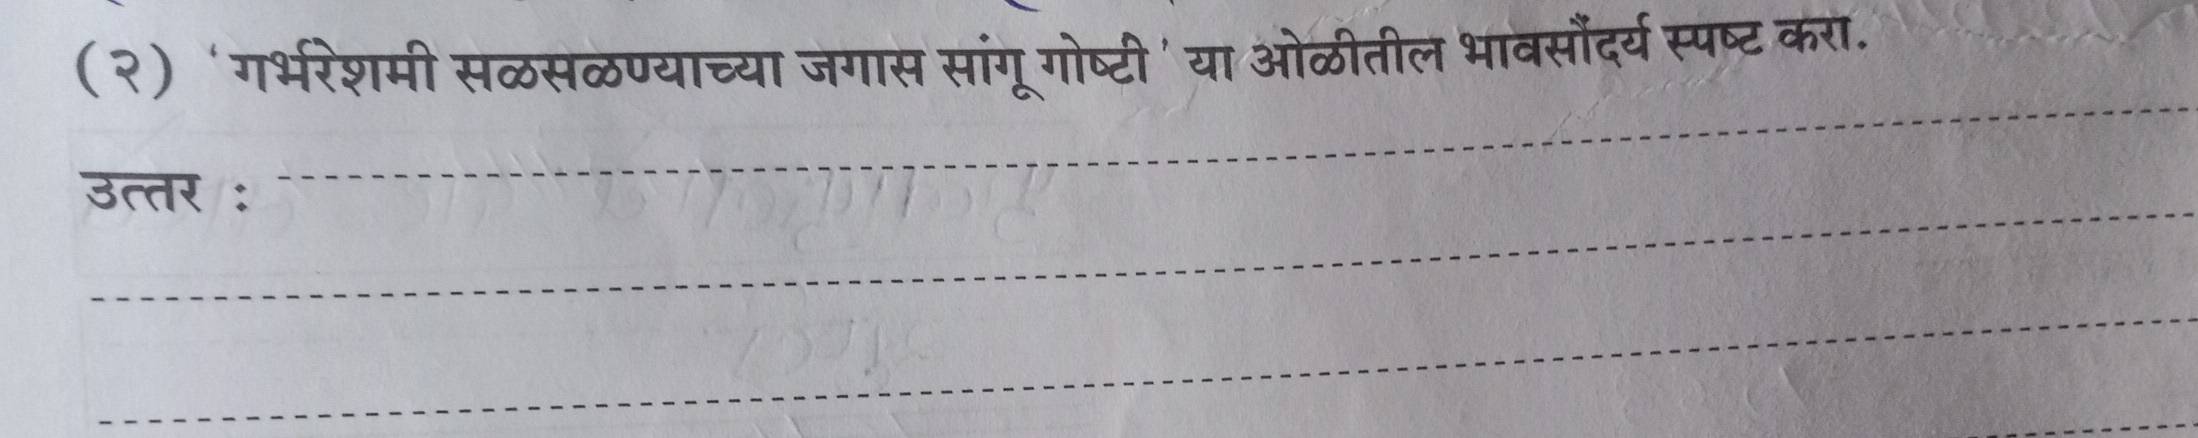 (२) 'गर्भरेशमी सळसळण्याच्या जगास सांगू गोष्टी' या ओळीतील भावसौंदर्य स्पष्ट करा.
उत्तर :